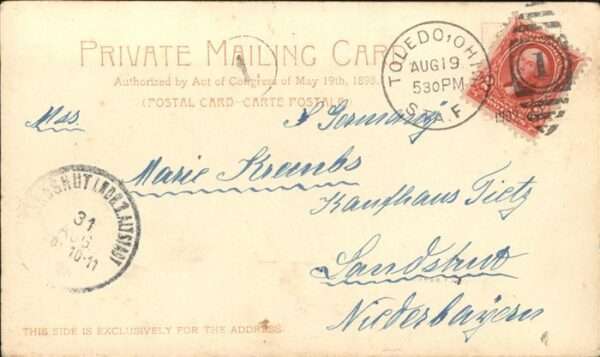 PRIVATE MAILING CARD
Authorized by Act of Congress of May 19th, 1898.
(POSTAL CARD—CARTE POSTALE)
1
TOLEDO, OHIO
AUG 19
530PM
STA. F
1
Germany
Marie Krembs
Kaufhaus Tietz
Landshut
Niederbayern
LANDSHUT
ALTSTADT
31
AUG
10-11
THIS SIDE IS EXCLUSIVELY FOR THE ADDRESS.